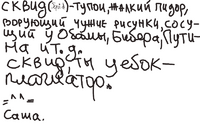 СКВИД -ТУПОЙ, ЖАЛКИЙ ПИДОР,
ВОРУЮЩИЙ ЧУЖИЕ РИСУНКИ, СОСУ-
ЩИЙ У ОБАМЫ, БИБЕРА, ПУТИ-
НА И Т.Д.
СКВИД, ТЫ УЕБОК-
ПЛАГИАТОР.
=^^=
Саша.